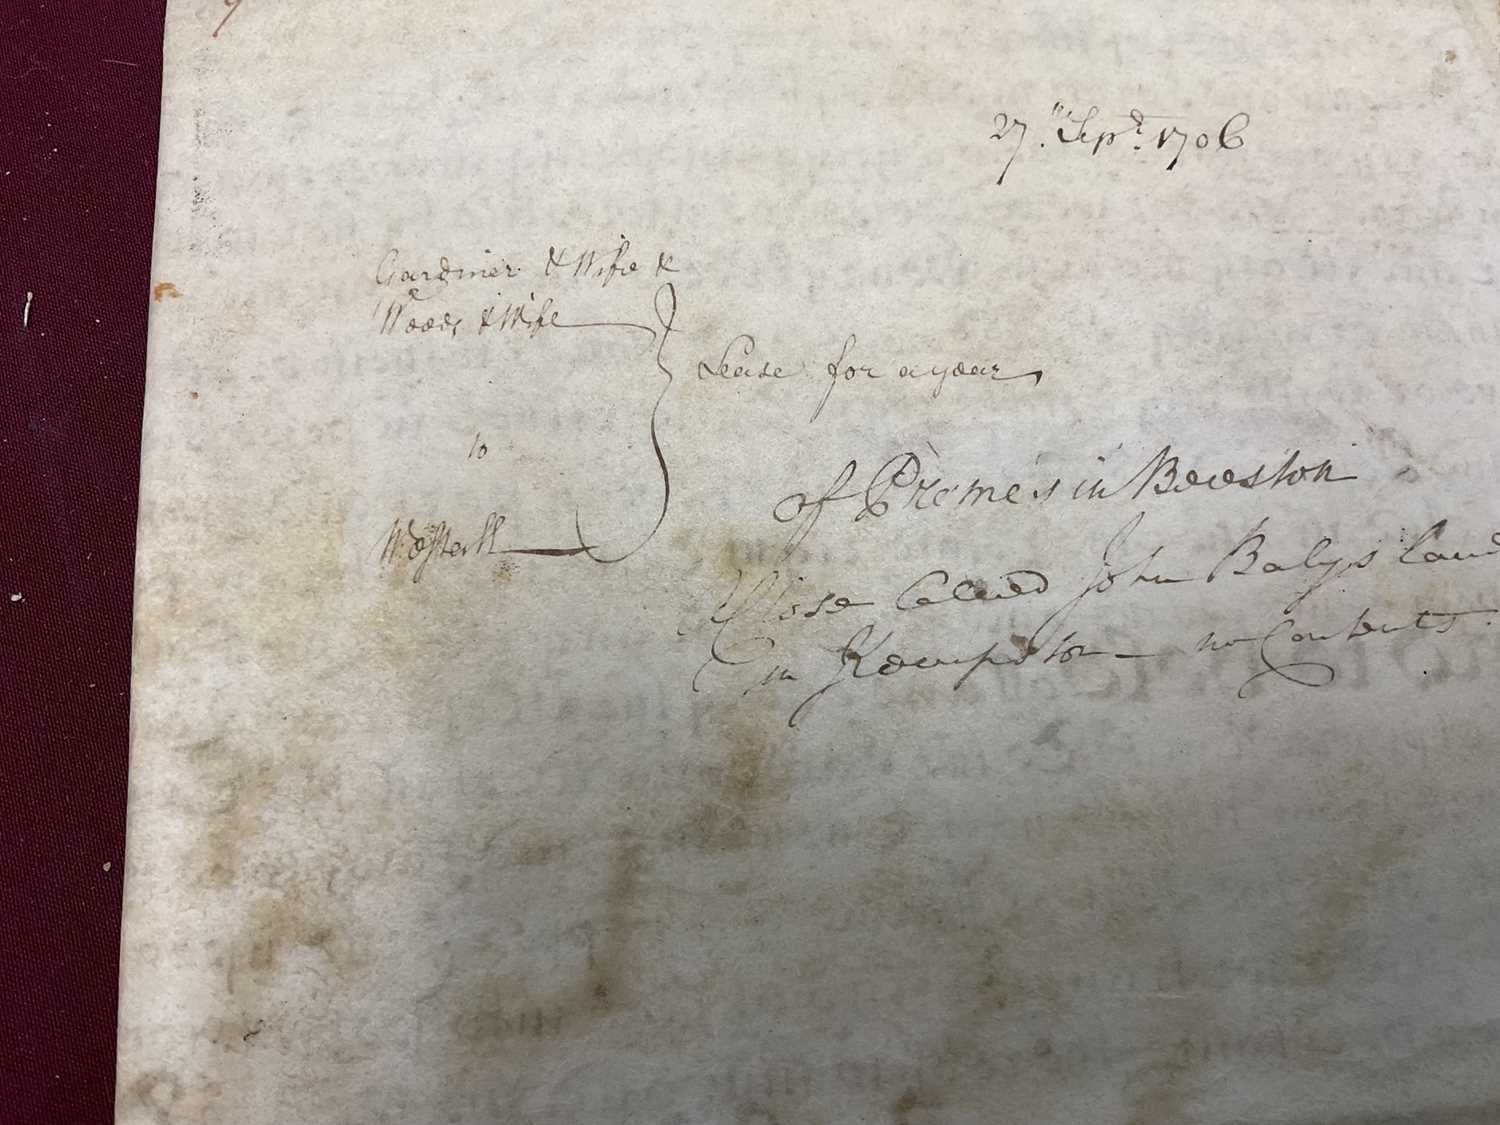 27th Sepr. 1706
Gardiner & Wife &
Woods & Wife
Lease for a year
to
Westhall
of Premes in Beeston
Close Called John Balys land
in Kempston - no Contents.